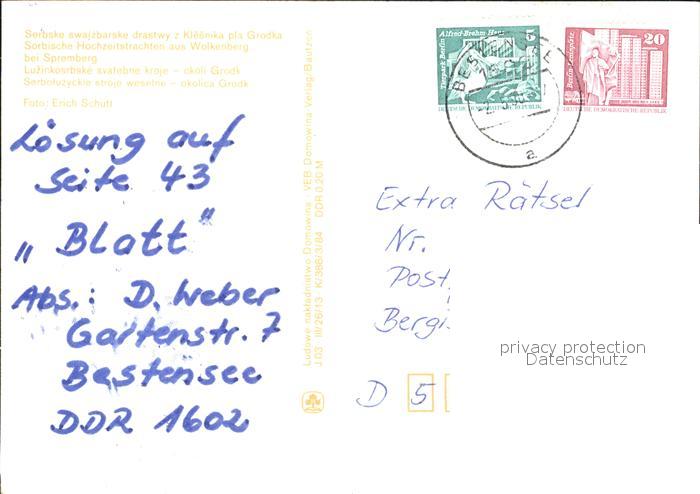 Serbske swajźbarske drastwy z Klěšnika pla Grodka
Sorbische Hochzeitstrachten aus Wolkenberg,
bei Spremberg
Lužickosrbske svatebne kroje – okolí Grodk
Serbołużyckie stroje weselne – okolica Grodk
Foto: Erich Schutt
Lösung auf
Seite 43
„Blatt"
Abs.: D. Weber
Gartenstr. 7
Bestensee
DDR 1602
Ludowe nakładnistwo Domowina · VEB Domowina-Verlag, Bautzen
J 03 III/26/13 K/366/3/84 DDR 0,20 M
Tierpark Berlin Alfred-Brehm-Haus
5
DEUTSCHE DEMOKRATISCHE REPUBLIK
Berlin-Leninplatz
20
DEUTSCHE DEMOKRATISCHE REPUBLIK
a
Extra Rätsel
Nr.
Post
Bergi
privacy protection
Datenschutz
D 5